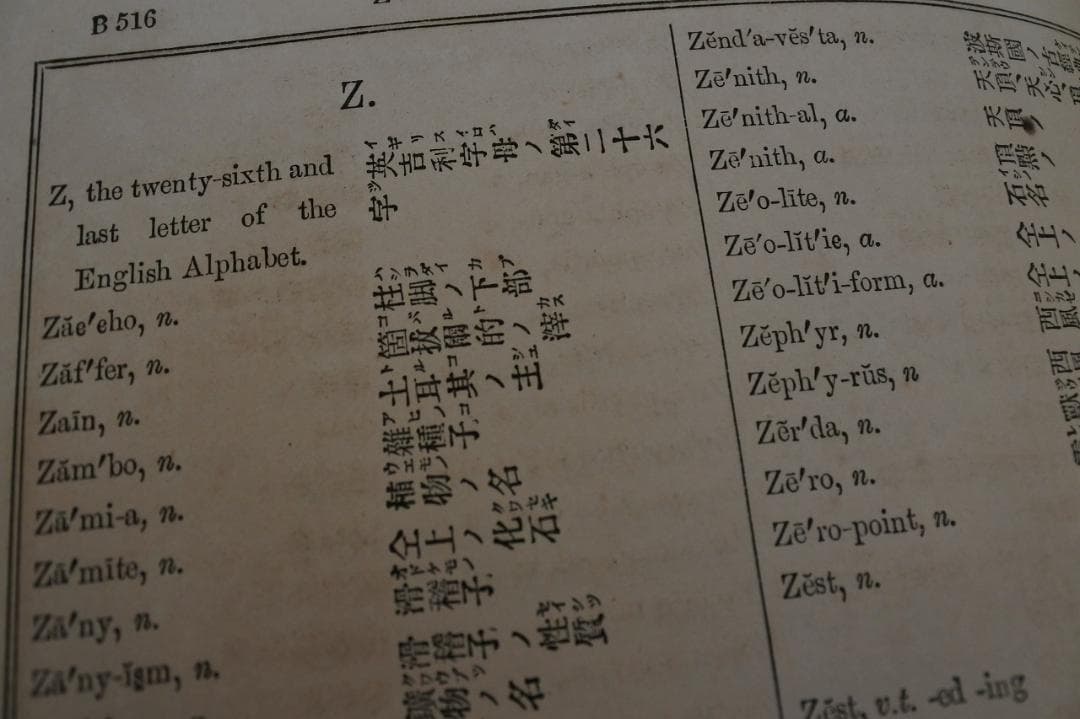 B 516
Z.
Z, the twenty-sixth and
last letter of the
English Alphabet.
英吉利字母ノ第二十六
字
Zăc′cho, n.
柱脚ノ下部
Zăf′fer, n.
箇拔爾的
Zaīn, n.
Zăm′bo, n.
雜種子
Zā′mi-a, n.
植物ノ名
Zā′mīte, n.
仝上ノ化石
Zā′ny, n.
滑稽子
Zā′ny-ĭşm, n.
滑稽子ノ性質
礦物ノ名
Zĕnd′a-vĕs′ta, n.
波斯國ノ古
Zē′nith, n.
天頂、天心
Zē′nith-al, a.
天頂ノ
Zē′nith, a.
頂點ノ
Zē′o-līte, n.
石名
Zē′o-lĭt′ic, a.
仝上ノ
Zē′o-lĭt′i-form, a.
仝上ノ
Zĕph′yr, n.
西風
Zĕph′y-rŭs, n
西
Zẽr′da, n.
獸
Zē′ro, n.
Zē′ro-point, n.
Zĕst, n.
Zĕst, v.t. -ed -ing